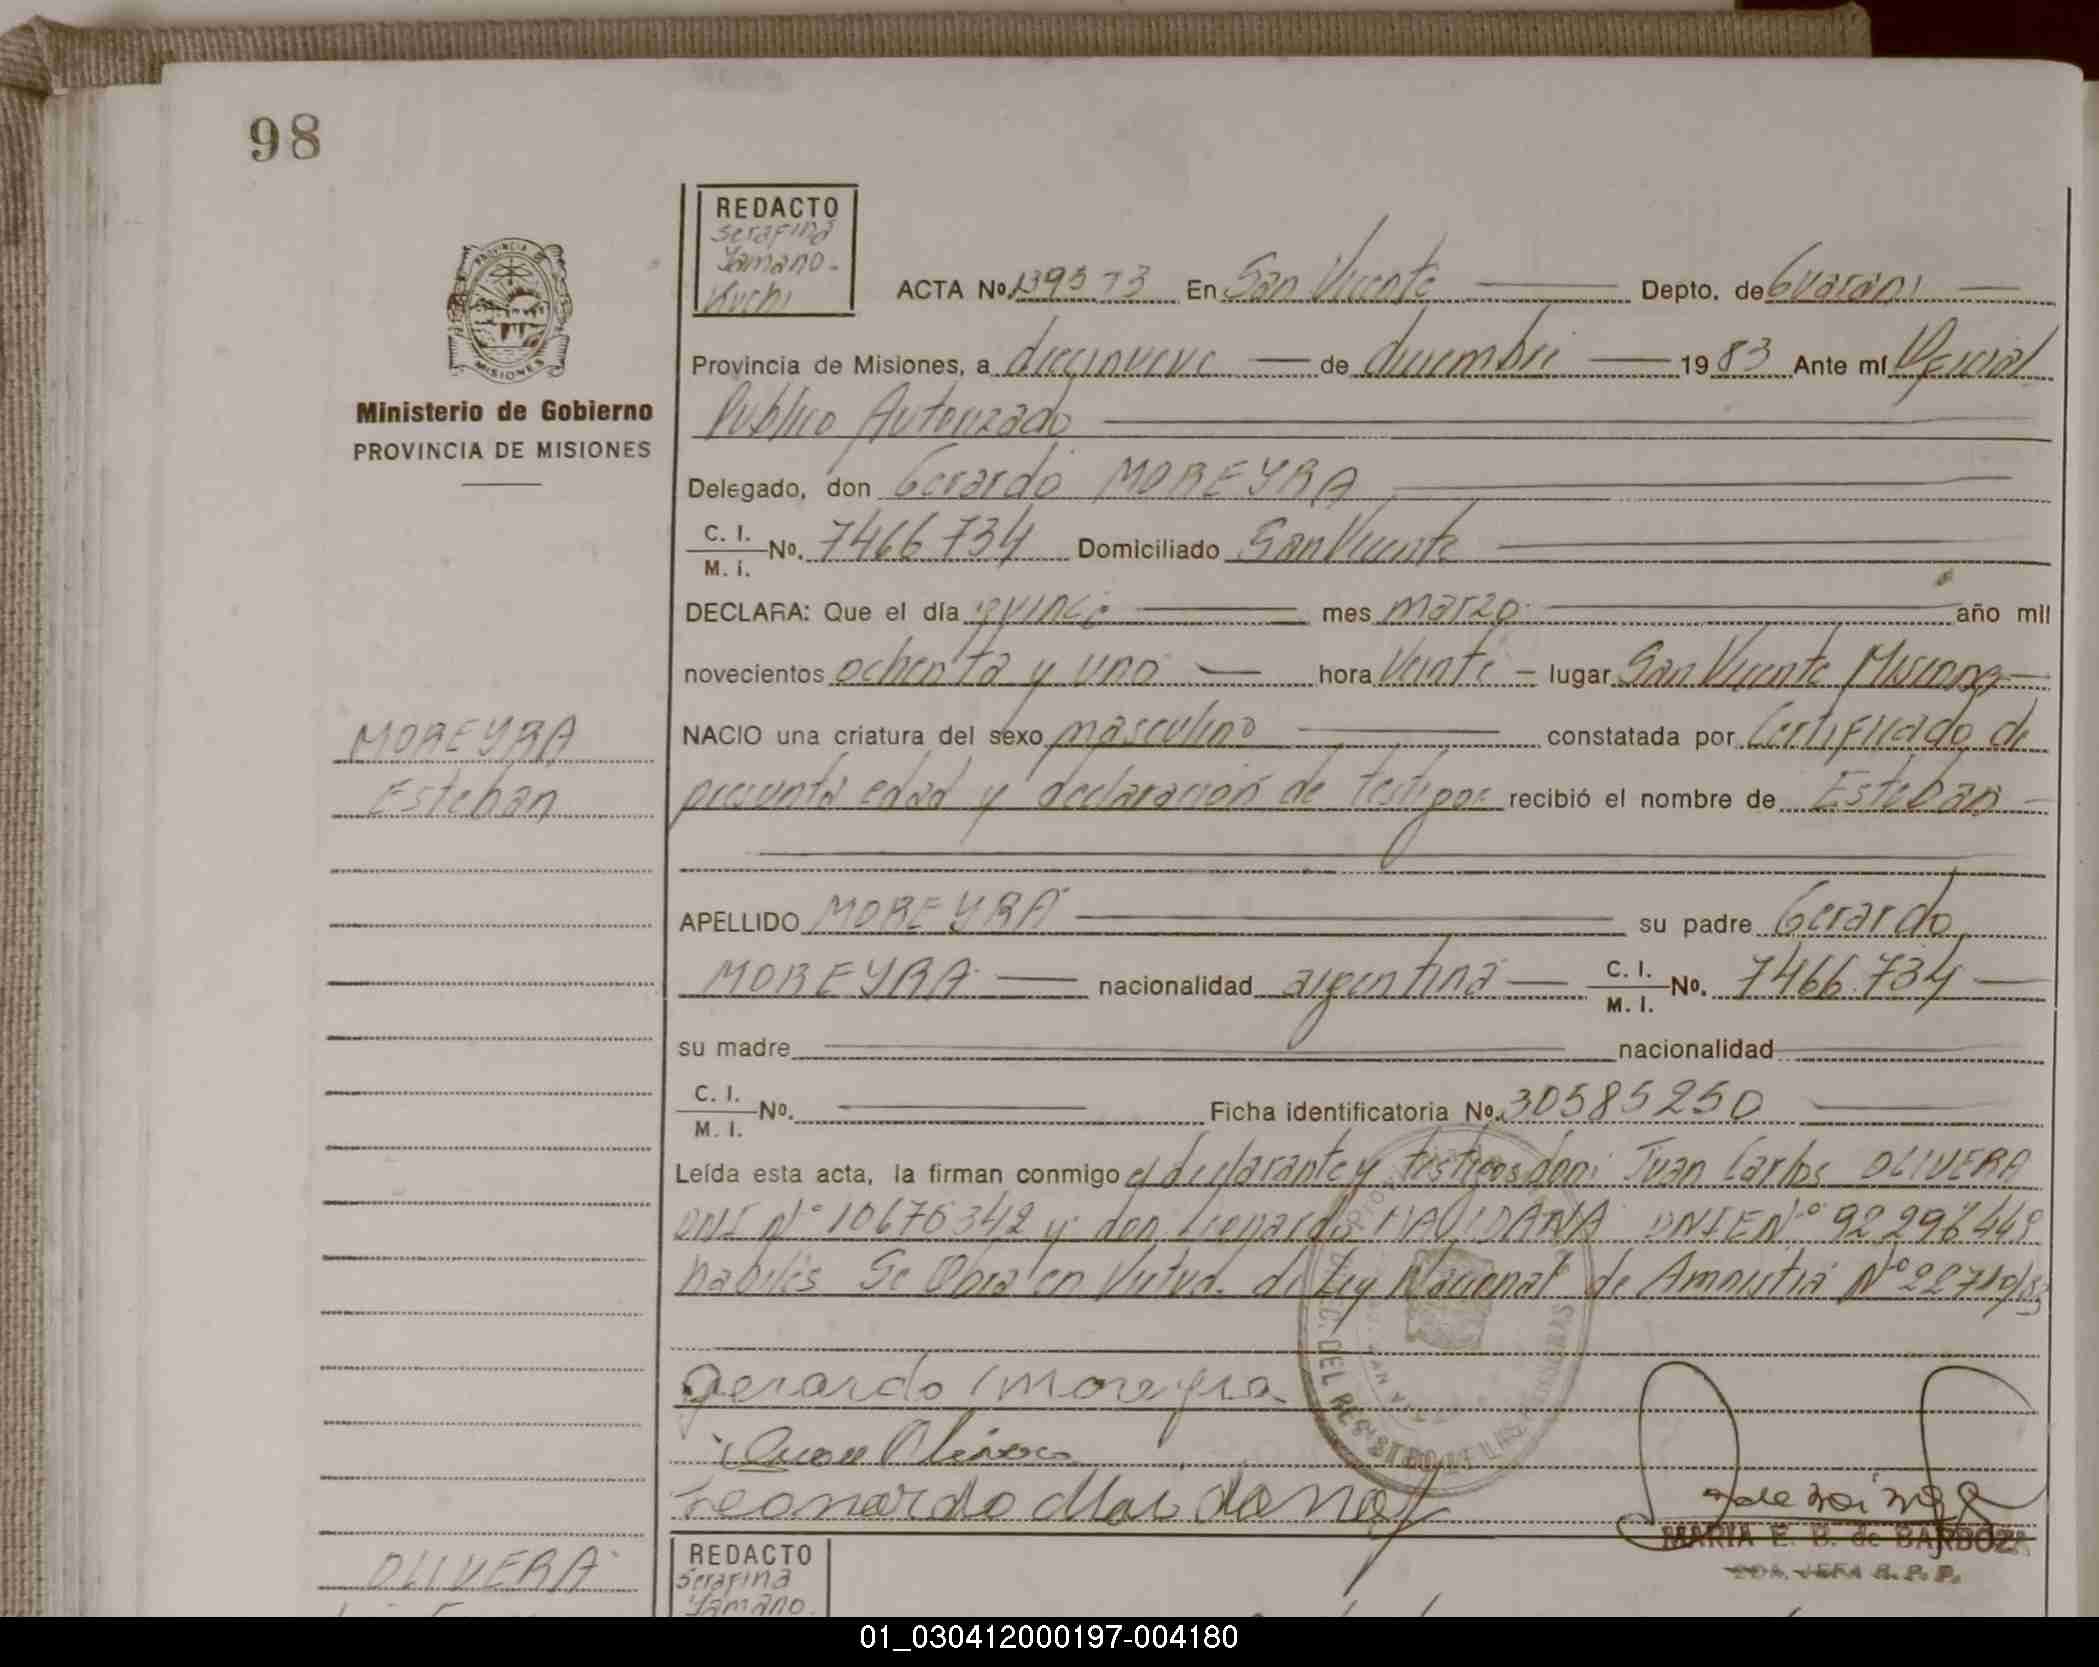 98
REDACTO
Serafina
Yamano-
Kuchi
PROVINCIA DE
MISIONES
Ministerio de Gobierno
PROVINCIA DE MISIONES
ACTA No. En San Vicente Depto. de Guaraní
Provincia de Misiones, a diecinueve de diciembre 1983 Ante mí Oficial
Público Autorizado
Delegado, don Gerardo MOREYRA
C. I. / M. I. No. 7466734 Domiciliado San Vicente
DECLARA: Que el día quince mes marzo año mil
novecientos ochenta y uno hora veinte lugar San Vicente Misiones
NACIO una criatura del sexo masculino constatada por Certificado de
presunta edad y declaración de testigos recibió el nombre de Esteban
MOREYRA
Esteban
APELLIDO MOREYRA su padre Gerardo
MOREYRA nacionalidad argentina C. I. / M. I. No. 7466.734
su madre nacionalidad
C. I. / M. I. No. Ficha identificatoria No. 30585250
Leída esta acta, la firman conmigo el declarante y testigos don: Juan Carlos OLIVERA
DNI Nº y don Leonardo MAIDANA DNIE Nº
hábiles Se Obra en Virtud de Ley Nacional de Amnistía Nº
gerardo moreyra
Juan Olivera
Leonardo Maidana
MARIA E. B. de BARBOZA
REDACTO
Serafina
Yamano.
OLIVERA
01_030412000197-004180